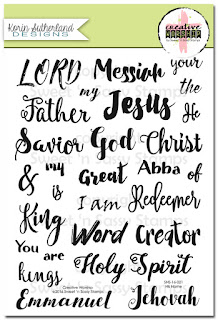 Korin Sutherland
DESIGNS
creative
worship
by Sweet 'n Sassy Stamps
LORD Messiah your
my the
Father Jesus He
Savior God Christ
& my Great Abba of
is I am Redeemer
King Word Creator
You are
kings Holy Spirit
Emmanuel Jehovah
Sweet 'n Sassy Stamps
Creative Worship
©2016 Sweet 'n Sassy Stamps
His Name